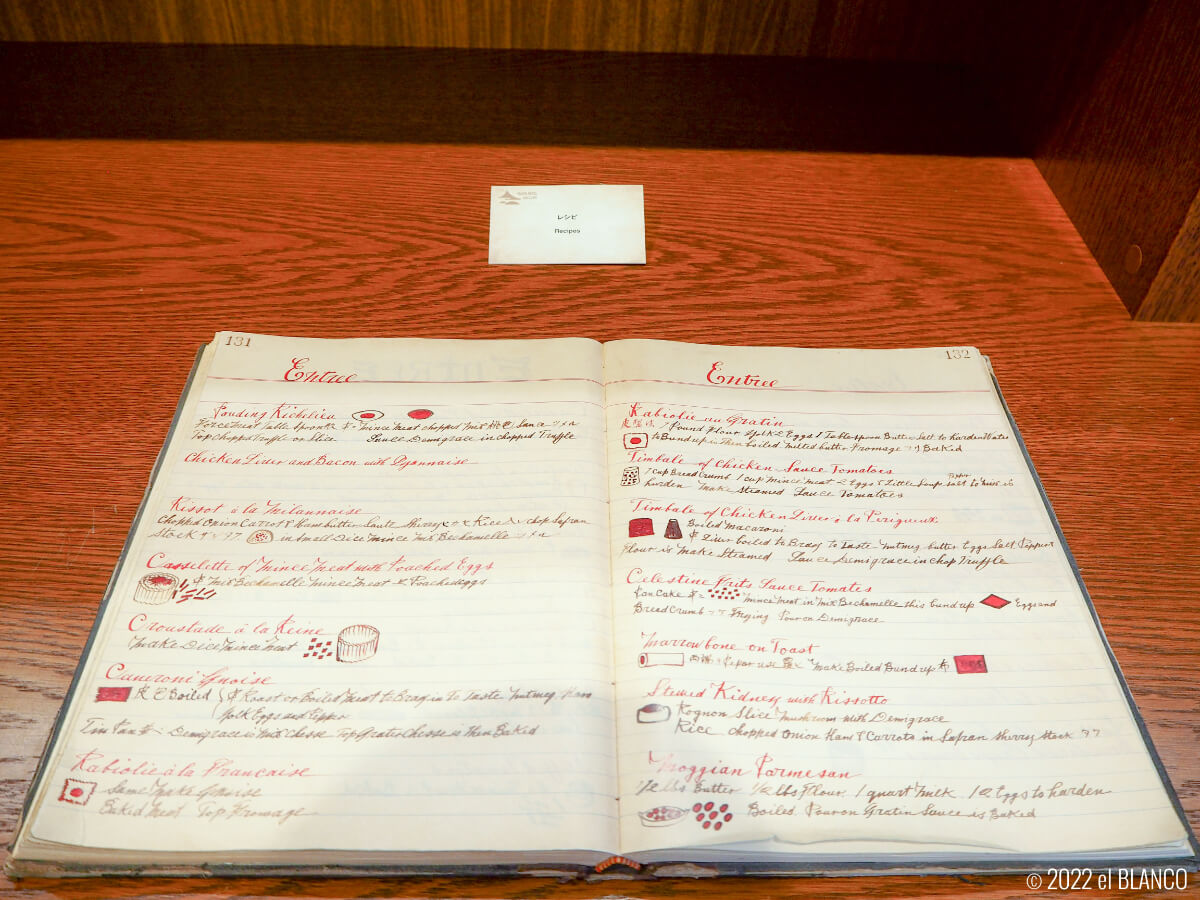 レシピ
Recipes
131
Entree
Pouding Richlieu
Forcemeat Table spoon mince meat chopped mix Sauce
Top chopps Truffle or Slice Sauce Demigrace in chopped Truffle
Chicken Liver and Bacon with Lyonnaise
Rissot à la Milannaise
Chopped onion Carrot & Ham butter Saute Sherry Rice chop Safran
Stock in small Dice mince mix Bechamelle
Casselette of Mince Meat with Poached Eggs
mix Bechamelle mince meat Poached eggs
Croustade à la Reine
make Dice mince meat
Canneroni Gnoise
Boiled Roast or Boiled meat to Bray in To Taste nutmeg Ham
Yolk Eggs and Pepper
Tim Pan Demigrace in mix chesse Top Grater chesse is Then Baked
Rabiolie à la Francaise
Same make Gnoise
Baked meat Top Fromage
132
Entree
Rabiolie au Gratin
1 Pound flour Yolk 2 Eggs 1 Tablespoon Butter Salt to harden Water
to Bund up is Then boiled melted butter Fromage Baked
Timbale of Chicken Sauce Tomatoes
1 cup Bread Crumb 1 cup mince meat 2 Eggs & Little Soup Pepper salt to mix is
harden make steamed Sauce Tomatoes
Timbale of Chicken Liver à la Perigueux
Boiled macaroni
Liver boiled to Bray to Taste nutmeg butter Eggs Salt Pepper
Flour is make Steamed Sauce Demigrace in chop Truffle
Celestine Frits Sauce Tomatoes
Pan Cake mince meat in mix Bechamelle this bund up Eggs and
Bread Crumb Frying Pour on Demigrace
Marrow bone on Toast
make Boiled Bund up
Stewed Kidney with Rissotto
Rognon Slice mushroom with Demigrace
Rice chopped onion Ham & Carrots in Safran Sherry Stock
Noggian Parmesan
1/2 lbs Butter 1/2 lbs Flour 1 quart milk 12 Eggs to harden
Boiled Pour on Gratin Sauce is Baked
© 2022 el BLANCO